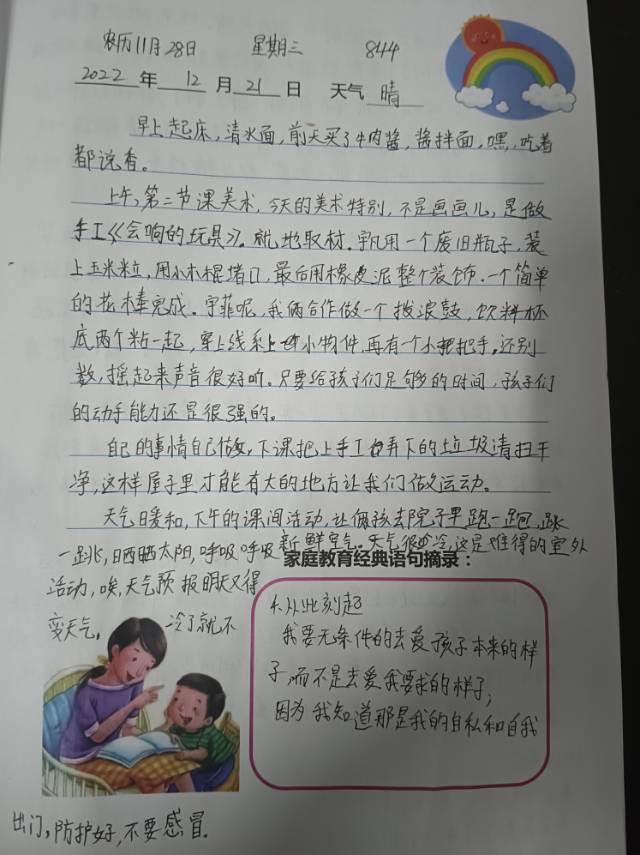 农历11月28日 星期三 844
2022 年 12 月 21 日 天气 晴
早上起床,清水面,前天买了牛肉酱,酱拌面,嘿,吃着
都说香。
上午,第二节课美术,今天的美术特别,不是画画儿,是做
手工《会响的玩具》。就地取材.宇凡用一个废旧瓶子,装
上玉米粒,用小木棍堵口,最后用橡皮泥整个装饰.一个简单
的花棒完成。宇菲呢,我俩合作做一个拨浪鼓,饮料杯
底两个粘一起,穿上线系上小物件,再有个小把手,还别
数,摇起来声音很好听。只要给孩子们足够的时间,孩子们
的动手能力还是很强的。
自己的事情自己做,下课把上手工弄下的垃圾清扫干
净,这样屋子里才能有大的地方让我们做运动。
天气暖和,下午的课间活动,让俩孩去院子里跑一跑,跳
一跳,晒晒太阳,呼吸呼吸新鲜空气。天气很冷,这是难得的室外
家庭教育经典语句摘录:
活动,唉,天气预报明天又得
变天气。冷了就不
出门,防护好,不要感冒.
1.从此刻起
我要无条件的去爱孩子本来的样
子,而不是去爱我要求的样子;
因为我知道那是我的自私和自我